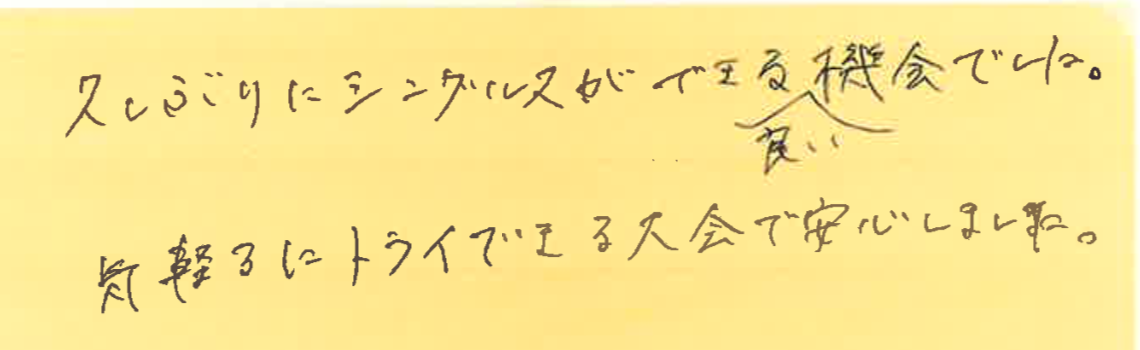 久しぶりにシングルスができる良い機会でした。
気軽るにトライできる大会で安心しました。